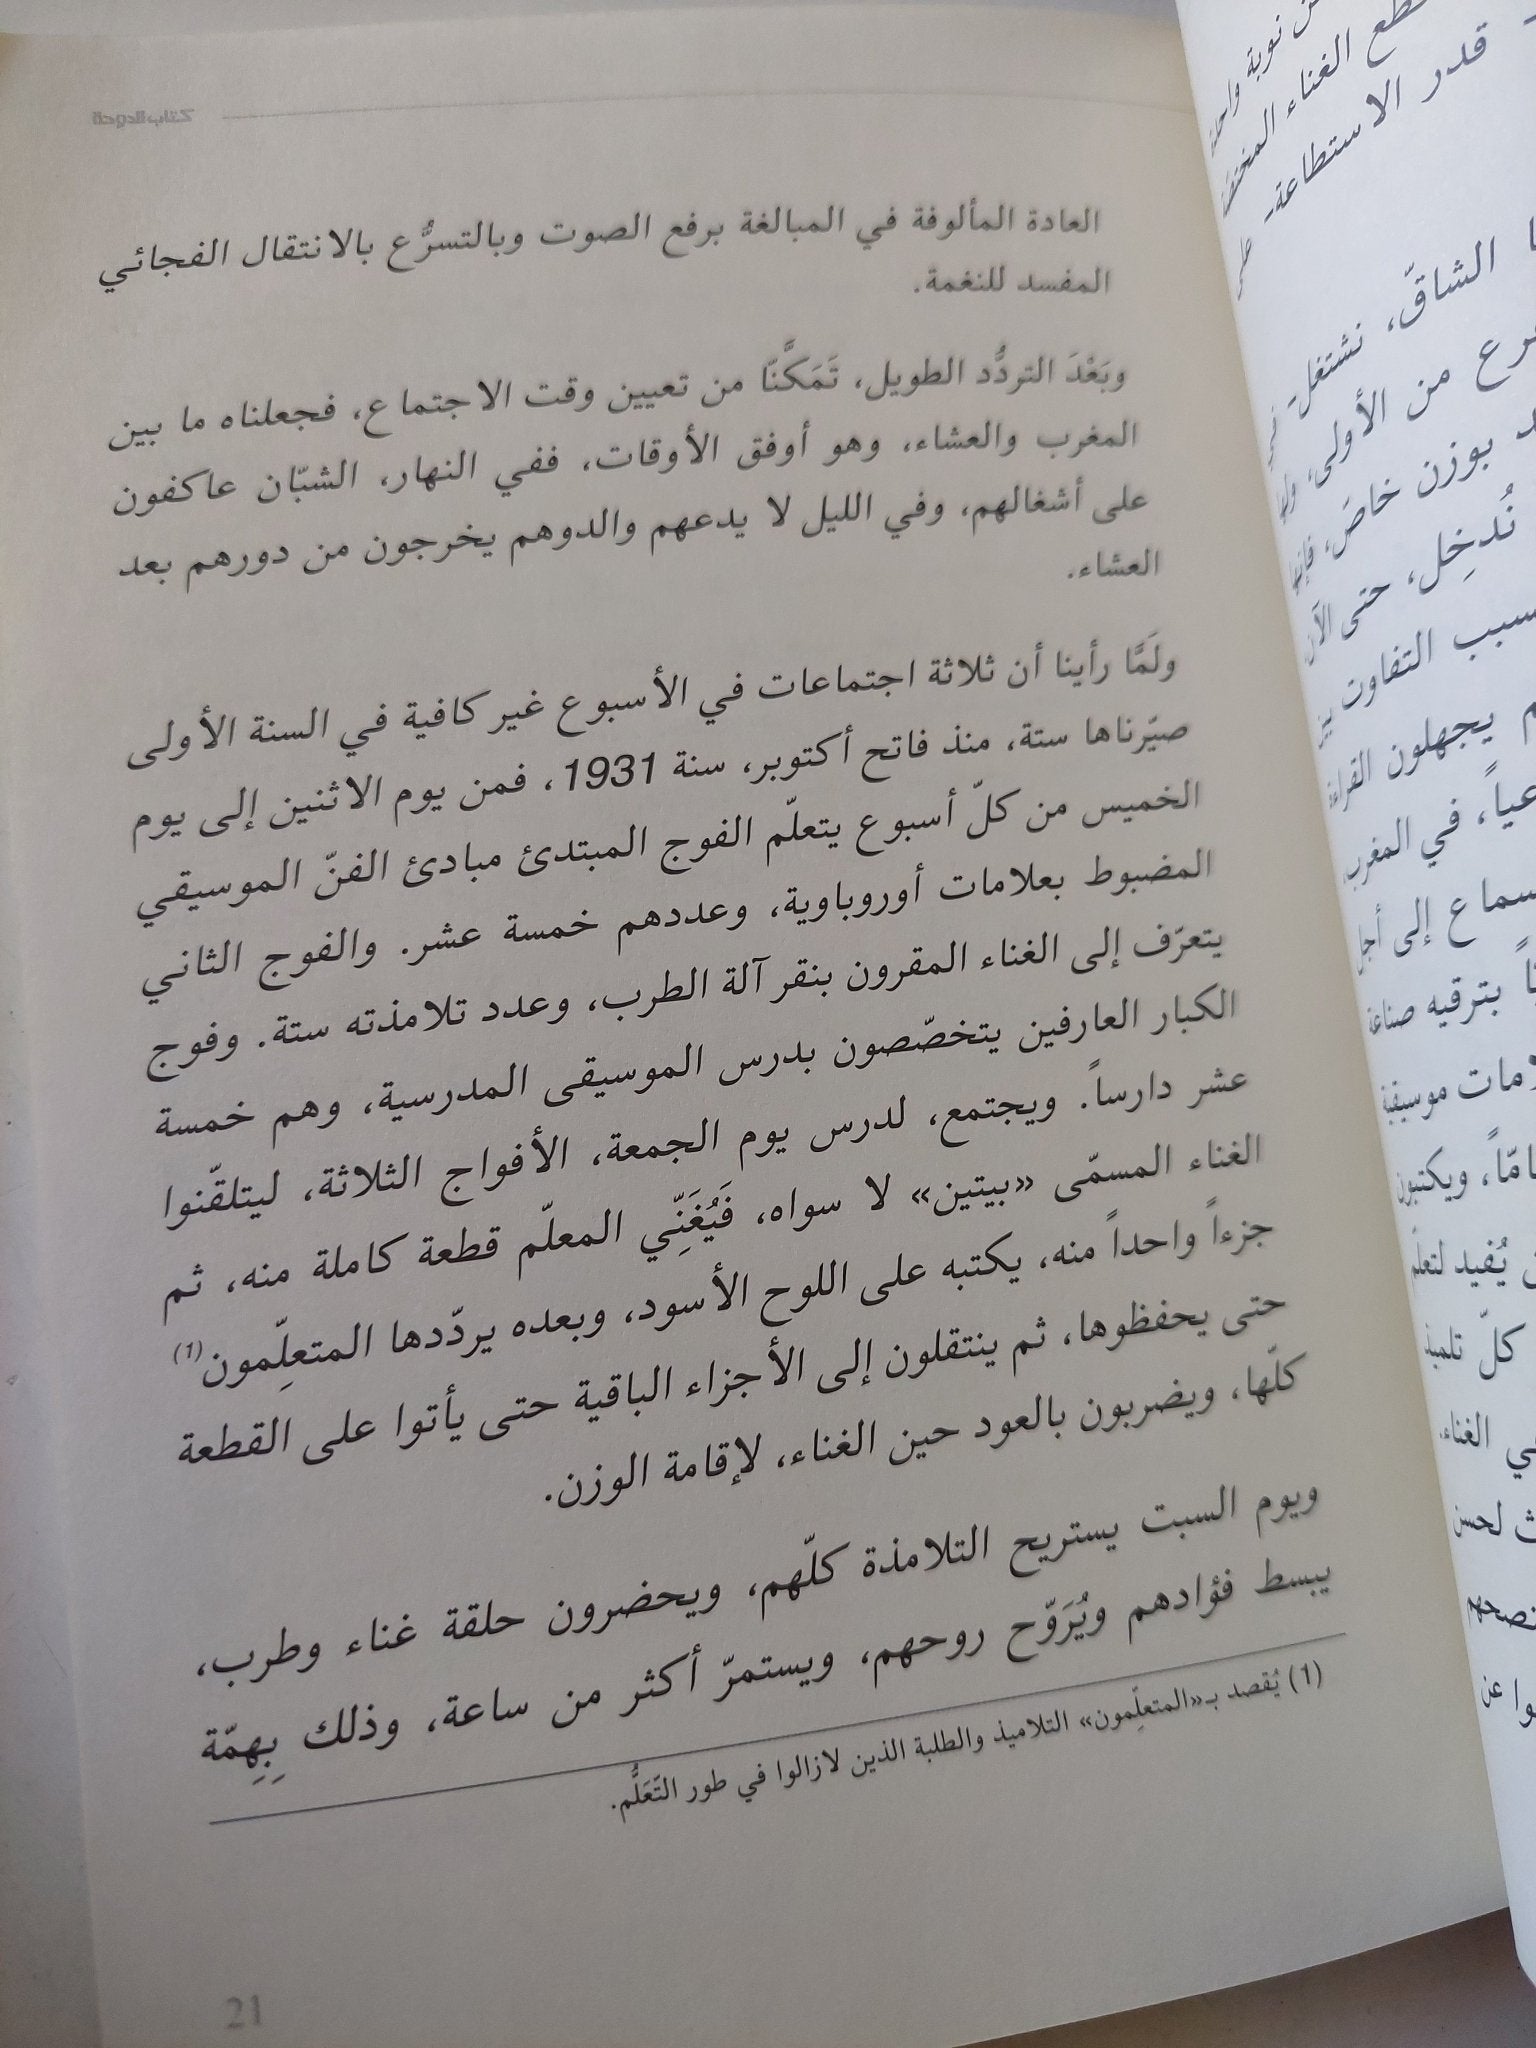 كتاب الدوحة
العادة المألوفة في المبالغة برفع الصوت وبالتسرُّع بالانتقال الفجائي
المفسد للنغمة.
وبَعْدَ التردُّد الطويل، تَمَكَّنّا من تعيين وقت الاجتماع، فجعلناه ما بين
المغرب والعشاء، وهو أوفق الأوقات، ففي النهار، الشبّان عاكفون
على أشغالهم، وفي الليل لا يدعهم والدوهم يخرجون من دورهم بعد
العشاء.
ولَمَّا رأينا أن ثلاثة اجتماعات في الأسبوع غير كافية في السنة الأولى
صيّرناها ستة، منذ فاتح أكتوبر، سنة 1931، فمن يوم الاثنين إلى يوم
الخميس من كلّ أسبوع يتعلّم الفوج المبتدئ مبادئ الفنّ الموسيقي
المضبوط بعلامات أوروباوية، وعددهم خمسة عشر. والفوج الثاني
يتعرّف إلى الغناء المقرون بنقر آلة الطرب، وعدد تلامذته ستة. وفوج
الكبار العارفين يتخصّصون بدرس الموسيقى المدرسية، وهم خمسة
عشر دارساً. ويجتمع، لدرس يوم الجمعة، الأفواج الثلاثة، ليتلقّنوا
الغناء المسمّى «بيتين» لا سواه، فَيُغَنِّي المعلّم قطعة كاملة منه، ثم
جزءاً واحداً منه، يكتبه على اللوح الأسود، وبعده يردّدها المتعلِّمون(1)
حتى يحفظوها، ثم ينتقلون إلى الأجزاء الباقية حتى يأتوا على القطعة
كلّها، ويضربون بالعود حين الغناء، لإقامة الوزن.
ويوم السبت يستريح التلامذة كلّهم، ويحضرون حلقة غناء وطرب،
يبسط فؤادهم ويُرَوّح روحهم، ويستمرّ أكثر من ساعة، وذلك بِهِمّة
(1) يُقصد بـ«المتعلِّمون» التلاميذ والطلبة الذين لازالوا في طور التّعَلُّم.
21
نوبة واحدة
الغناء
قدر الاستطاعة-
الشاقّ، نشتغل
من الأولى،
بوزن خاصّ، فإنها
نُدخِل، حتى الآن
التفاوت بين
يجهلون القراءة
في المغرب
إلى أجل
بترقيه صناعة
موسيقية
ويكتبون
يُفيد لتعلّم
كلّ تلميذ
الغناء.
لحسن
عن